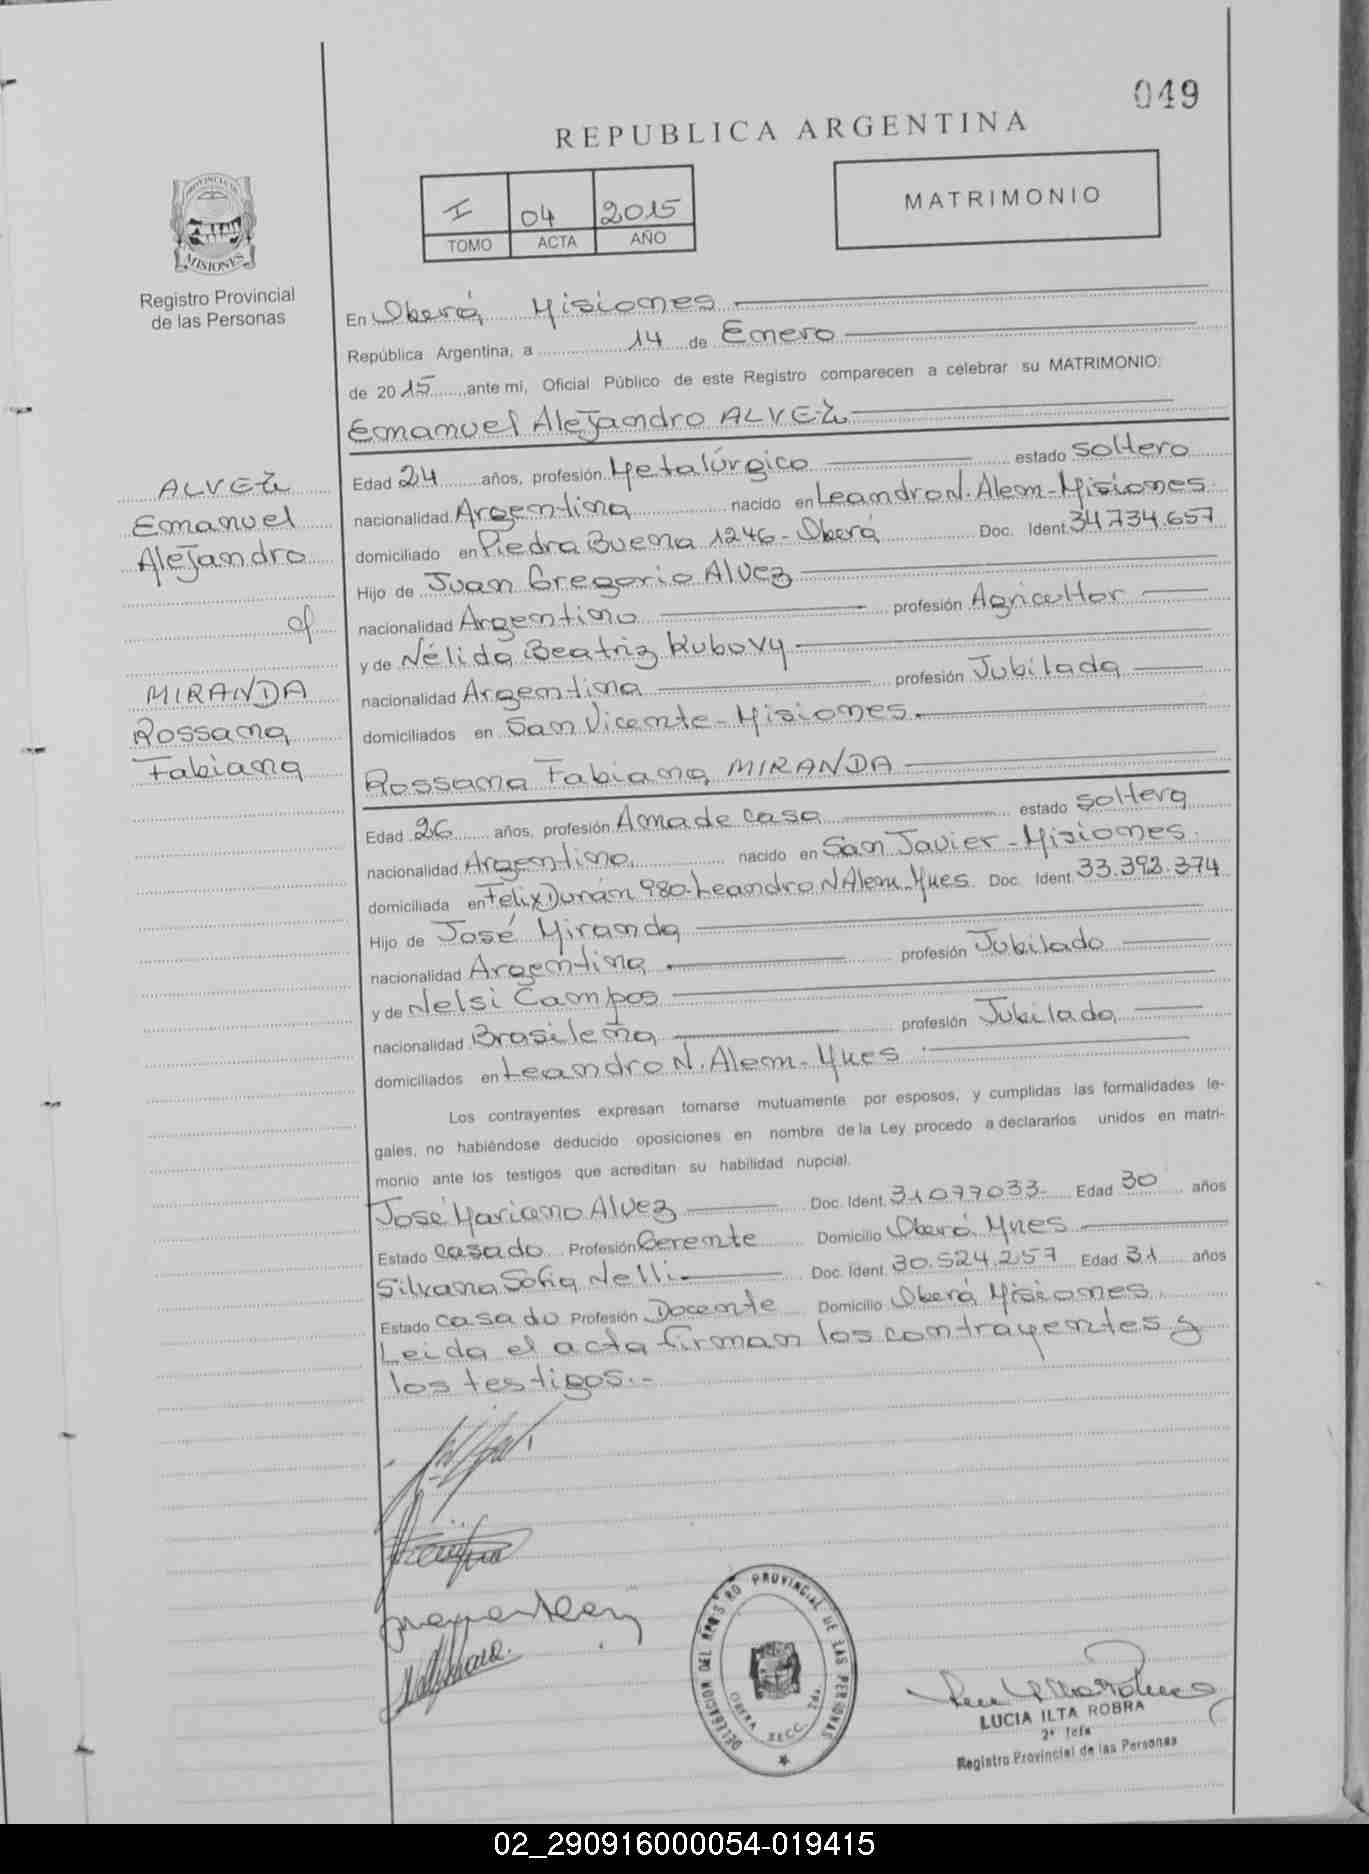 049
REPUBLICA ARGENTINA
I 04 2015
TOMO ACTA AÑO
MATRIMONIO
PROVINCIA DE
MISIONES
Registro Provincial
de las Personas
En Oberá Misiones
República Argentina, a 14 de Enero
de 2015, ante mi, Oficial Público de este Registro comparecen a celebrar su MATRIMONIO:
Emanuel Alejandro ALVEZ
ALVEZ
Emanuel
Alejandro
c/
MIRANDA
Rossana
Fabiana
Edad 24 años, profesión Metalúrgico estado soltero
nacionalidad Argentina nacido en Leandro N. Alem-Misiones
domiciliado en Piedra Buena 1246-Oberá Doc. Ident. 34.734.657
Hijo de Juan Gregorio Alvez
nacionalidad Argentino profesión Agricultor
y de Nélida Beatriz Kubovy
nacionalidad Argentina profesión Jubilada
domiciliados en San Vicente-Misiones.
Rossana Fabiana MIRANDA
Edad 26 años, profesión Ama de casa estado soltera
nacionalidad Argentina nacido en San Javier-Misiones.
domiciliada en Felix Durán 980-Leandro N Alem-Mnes. Doc. Ident. 33.392.374
Hijo de José Miranda
nacionalidad Argentina profesión Jubilado
y de Nelsi Campos
nacionalidad Brasileña profesión Jubilada
domiciliados en Leandro N. Alem-Mnes
Los contrayentes expresan tomarse mutuamente por esposos, y cumplidas las formalidades le-
gales, no habiéndose deducido oposiciones en nombre de la Ley procedo a declararlos unidos en matri-
monio ante los testigos que acreditan su habilidad nupcial.
José Mariano Alvez Doc. Ident. 31077033- Edad 30 años
Estado casado Profesión Gerente Domicilio Oberá Mnes
Silvana Sofia Nelli Doc. Ident. 30.524.257 Edad 31 años
Estado casado Profesión Docente Domicilio Oberá Misiones
Leida el acta firman los contrayentes y
los testigos.-
DELEGACION DEL REGISTRO PROVINCIAL DE LAS PERSONAS
OBERA SECC. 2da
LUCIA ILTA ROBRA
2ª Jefa
Registro Provincial de las Personas
02_290916000054-019415